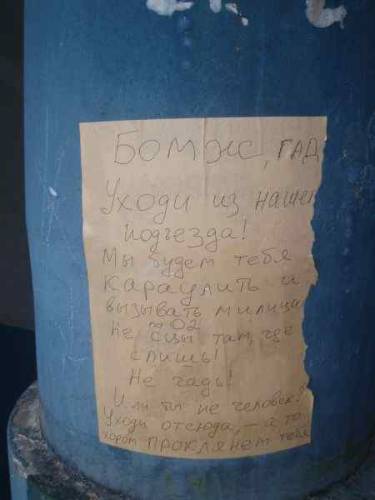 Бомж, гад
Уходи из нашег
подъезда!
Мы будем тебя
караулить и
вызывать милици
по 02
Не сцы там, где
спишь!
Не гадь!
Или ты не человек?
Уходи отсюда, – а то
хором проклянем тебя